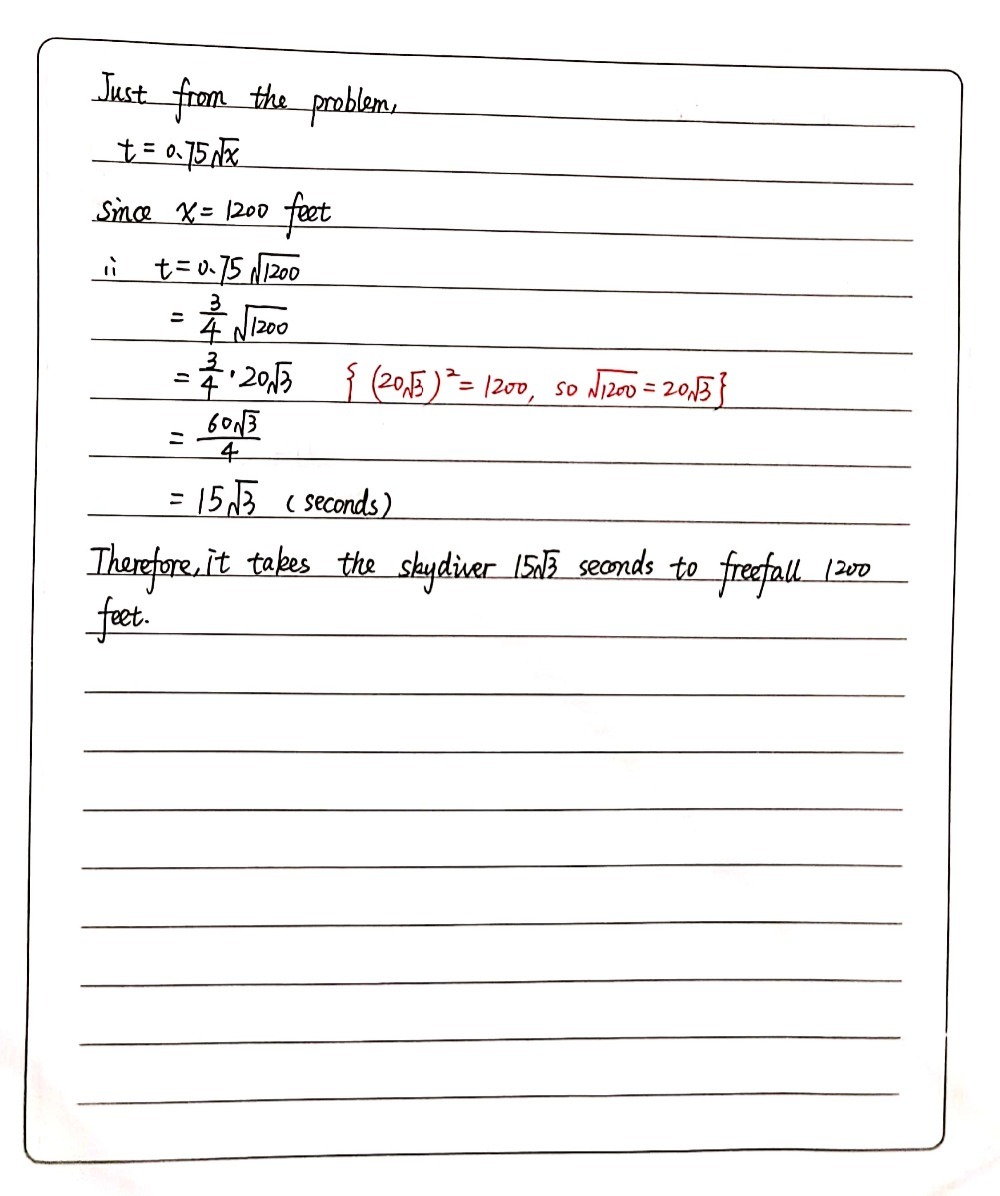 Just from the problem,
t = 0.75√x
since x = 1200 feet
∴ t = 0.75√1200
= 3/4 √1200
= 3/4 · 20√3 { (20√3)² = 1200, so √1200 = 20√3 }
= 60√3/4
= 15√3 (seconds)
Therefore, it takes the skydiver 15√3 seconds to freefall 1200
feet.